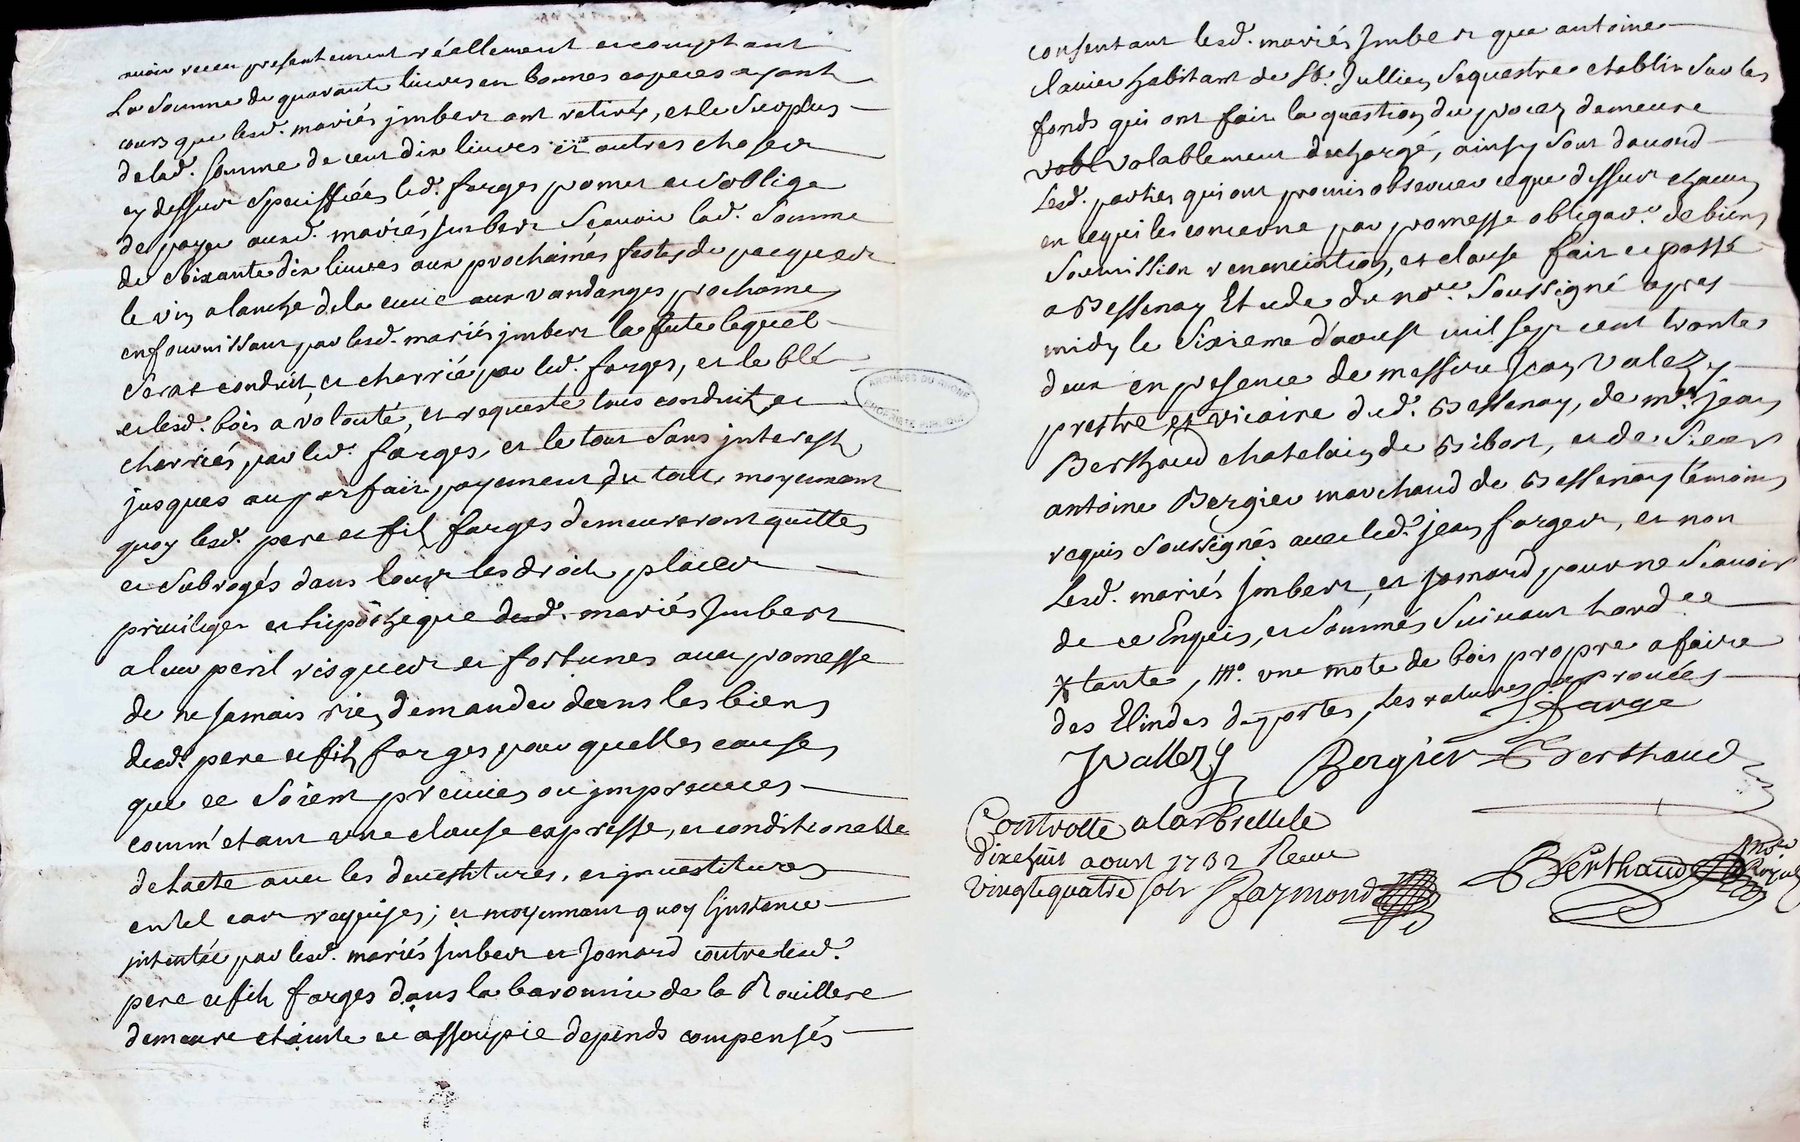 avoir receu presentement réellement et comptant
La somme de quarante livres en bonnes especes ayant
cours que lesd. mariés jmbert ont retirés, et le surplus
de lad. somme de cent dix livres et autres choses
cy dessus speciffiées led. farges promet et s'oblige
de payer auxd. mariés jmbert sçavoir lad. somme
de soixante dix livres aux prochaines festes de pacques
le vin a lanche de la cuve aux vandanges prochaines
en fournissant par lesd. mariés jmbert la futte lequel
sera conduit, et charrié par led. farges, et le blé
et lesd. bois a volonté, et requeste tous conduit, et
charriés par led. farges, et le tout sans jnterest
jusques au parfait payement du tout, moyennant
quoy lesd. pere et fils farges demeureront quittes
et subrogés dans tous les droits places
privileges et hipotheque desd. mariés jmbert
a leur peril risques et fortunes avec promesse
de ne jamais rien demander dans les biens
desd. pere et fils farges pour quelles causes
que ce soient préuües ou jmpreuues
comm'etant une clause expresse, et conditionelle
de lacte avec les devestitures, et jnvestitures
en tel cas requises; et moyennant quoy l'jnstance
jntentée par lesd. mariés jmbert et jomard contre lesd.
pere et fils farges dans la baronnie de la Rouillere
demeure etainte et assoupie depends compensés
consentant lesd. mariés jmbert que antoine
clavier habitant de St. Jullien sequestre etablis sur les
fonds qui ont fait la question du procez demeure
vabl valablement dechargé, ainsy sont d'accord
Lesd. parties qui ont promis observer ce que dessus chacun
en ce qui les concerne par promesse obligaon. de biens
soumission renonciation, et clause fait et passé
a Bessenay Etude du nore. soussigné apres
midy le sixieme d'aoust mil sept cent trante
deux en presence de messire jean Valezy
prestre et vicaire dud. Bessenay, de mre. jean
Berthaud chatelain de Bibost, et de sieur
antoine Bergier marchand de Bessenay témoins
requis soussignés avec led. jean farges, et non
Lesd. mariés jmbert, et jomard pour ne sçavoir
de ce Enquis, et sommés suivant lordce
x tante, mo. une mote de bois propre a faire
des Elindes de portes, les ratures approuvées
J. farge
J Vallezy Bergier Berthaud
Controllé a Larbrelle le
dixehuit aoust 1732 Receu
vingtequatre sols Raymond
Berthaud Nore Royal
ARCHIVES DU RHONE
PROPRIETE PUBLIQUE